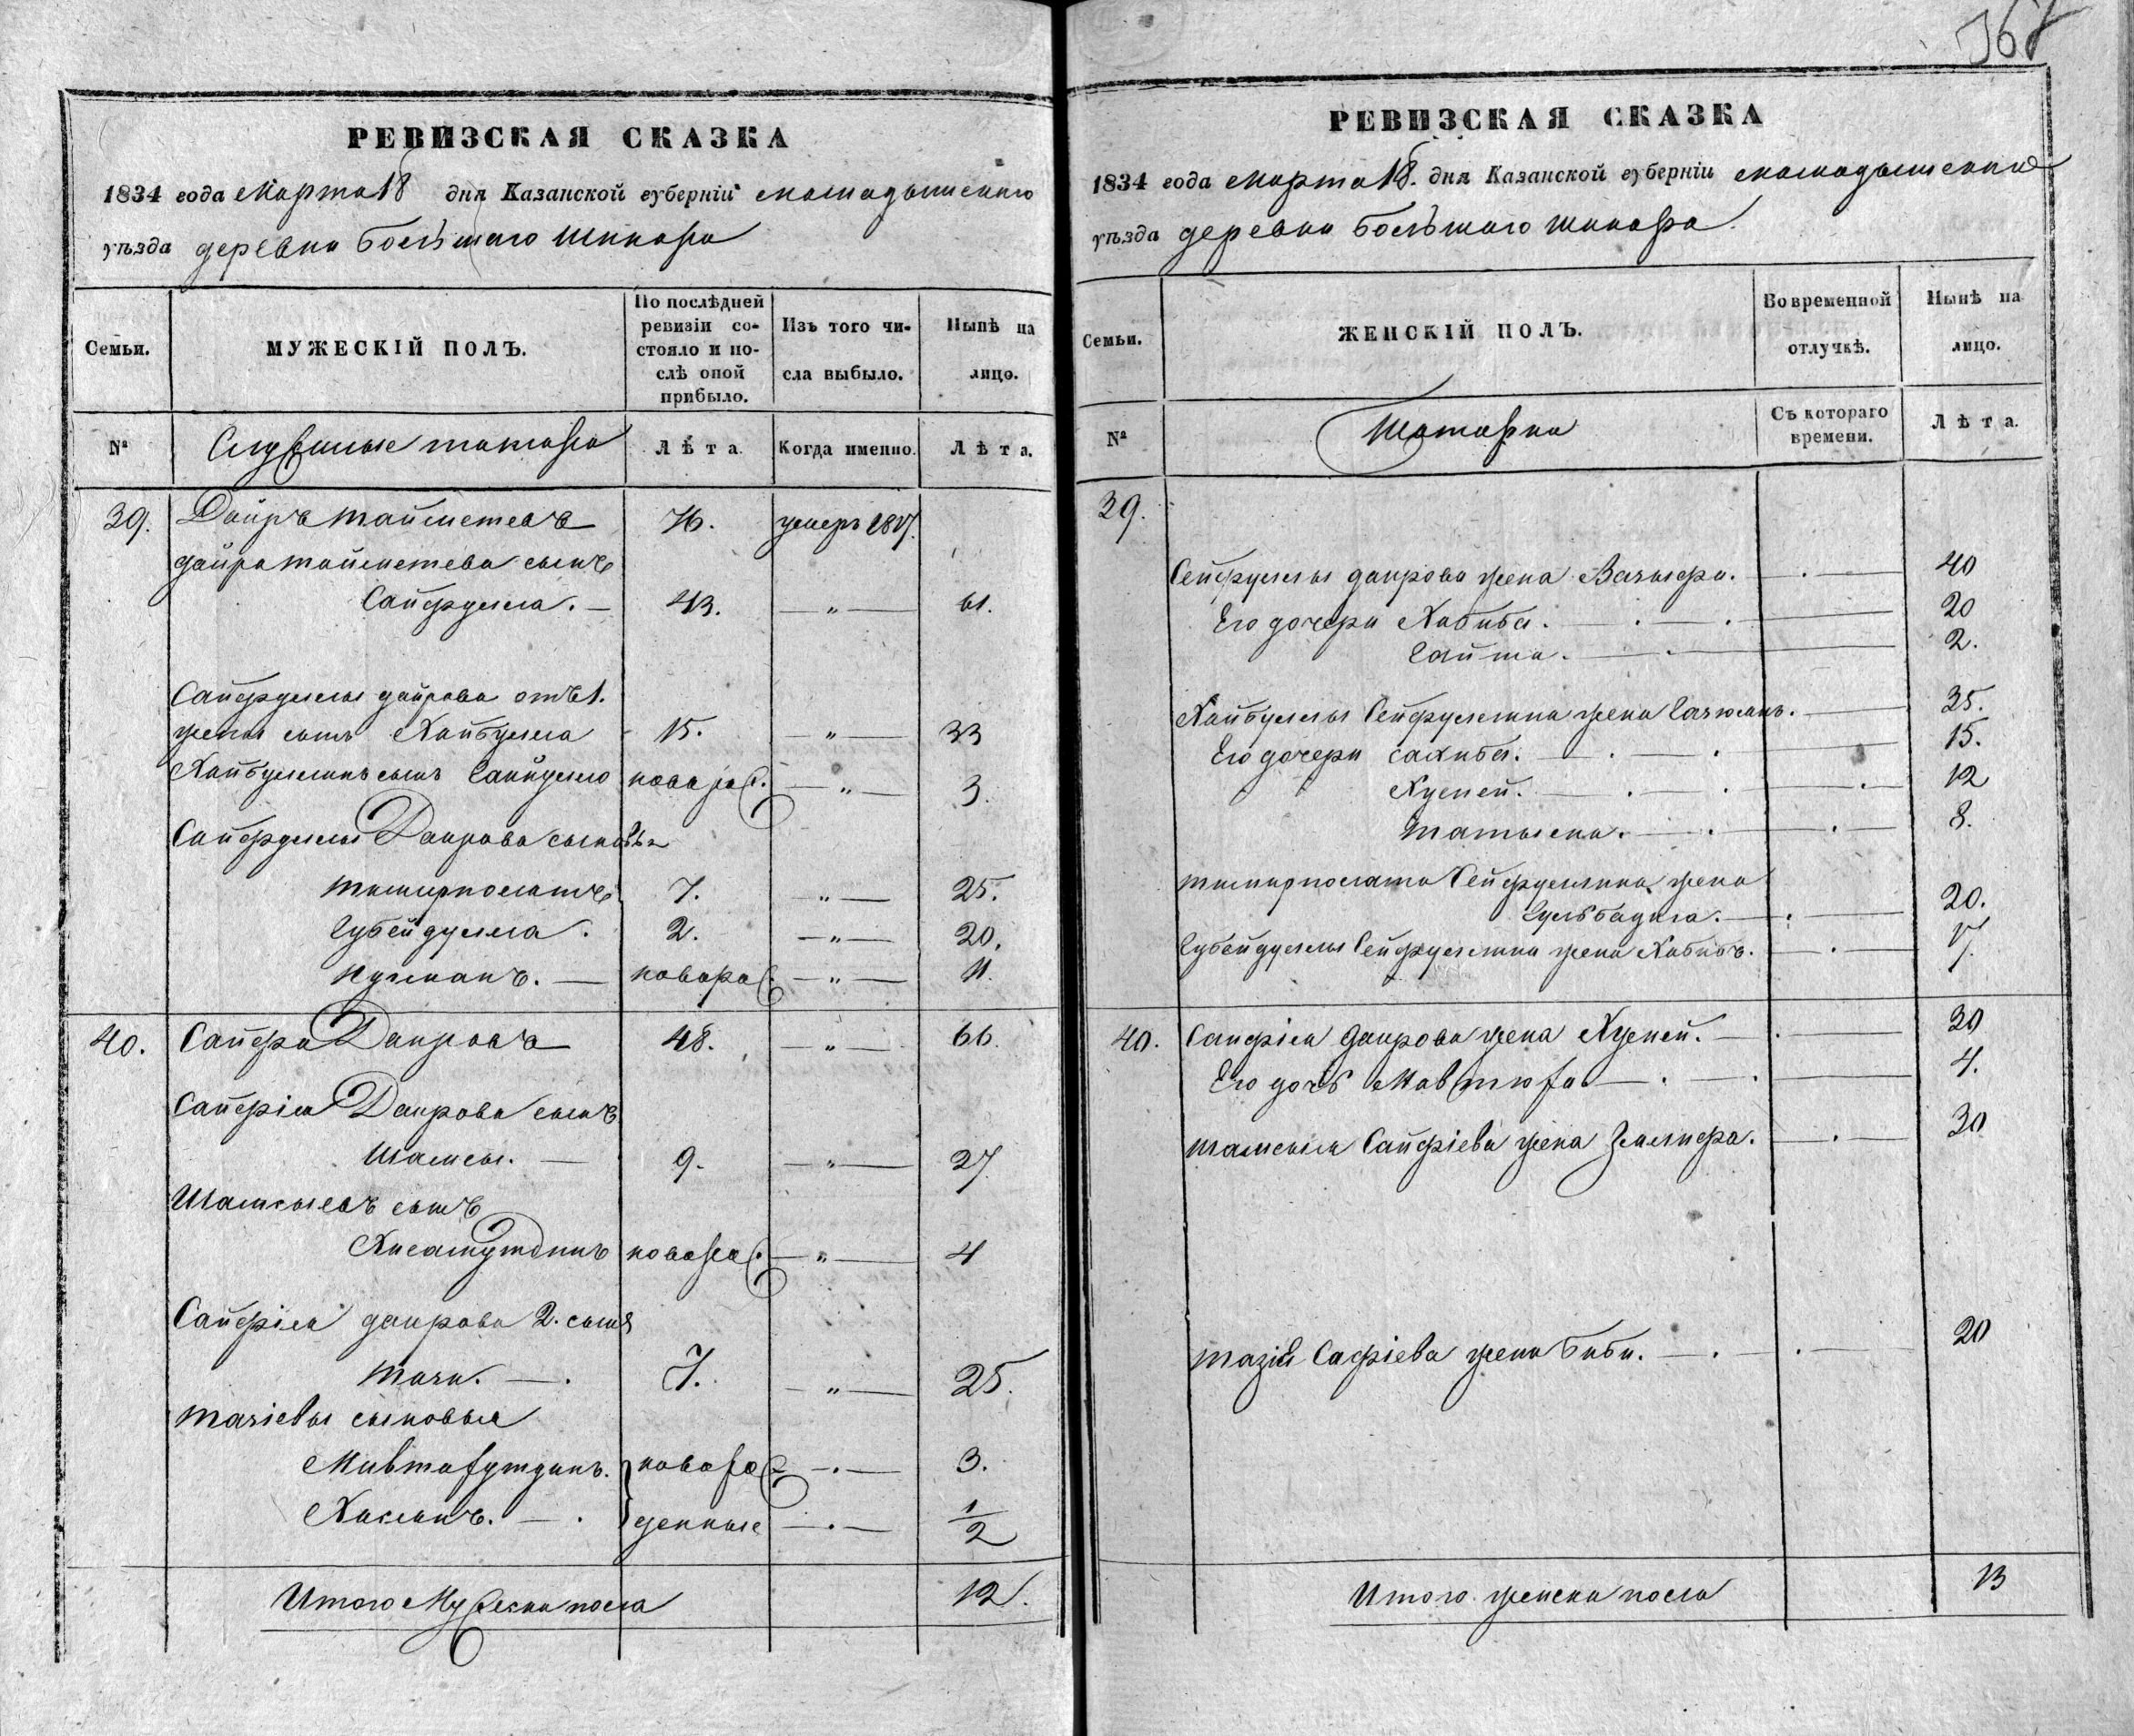 367
РЕВИЗСКАЯ СКАЗКА
1834 года Марта 18 дня Казанской губерніи Мамадышскаго
уѣзда деревни Большаго Шинара
Семьи.
МУЖЕСКІЙ ПОЛЪ.
По послѣдней ревизіи состояло и послѣ оной прибыло.
Изъ того числа выбыло.
Нынѣ на лицо.
№
Служилые татара
Лѣта.
Когда именно.
Лѣта.
39. Даиръ Тойметевъ 76. умеръ 1817.
Дайра Тойметева сынъ
Сайфулла. — 43. — „ — 61.
Сайфуллы Даирова отъ 1.
жены сынъ Хайбулла 15. — „ — 33
Хайбуллинъ сынъ новорож. — „ — 3.
Сайфуллы Даирова сыновья
Тимирполатъ 7. — „ — 25.
Губейдулла. 2. — „ — 20.
Нугманъ. — новорож. — „ — 11.
40. Сайфи Даировъ 48. — „ — 66.
Сайфія Даирова сынъ
Шамсы. — 9. — „ — 27
Шамсыевъ сынъ
Хисамутдинъ новорож. — „ — 4
Сайфія Даирова 2. сынъ
Тази. — . 7. — „ — 25.
Тазіевы сыновья
Мивтахутдинъ. новорож — . — 3.
Хисанъ. — . денные — . — 1/2
Итого Мужеска пола 12.
РЕВИЗСКАЯ СКАЗКА
1834 года Марта 18. дня Казанской губерніи Мамадышскаго
уѣзда деревни Большаго Шинара.
Семьи.
ЖЕНСКІЙ ПОЛЪ.
Во временной отлучкѣ.
Нынѣ на лицо.
№
Татарки
Съ котораго времени.
Лѣта.
39.
Сейфуллы Даирова жена — . — 40
Его дочери Хабиба. — . — . — 20
Сайта. — . — 2.
Хайбуллы Сейфуллина жена — 35.
Его дочери Сахиба. — . — . — 15.
Хуппей. — . — . — . — 12
— . — . — 8.
Тимирполата Сейфуллина жена
Гульбадига. — . — 20.
Губейдуллы Сейфуллина жена Хабибъ. — . — 17.
40. Сайфія Даирова жена Хуппей. — . — 30
Его дочь — . — . — 4.
Шамсыя Сайфіева жена Зямифа. — . — 30
Тазія Сафіева жена Биби. — . — . — 20
Итого женска пола 13